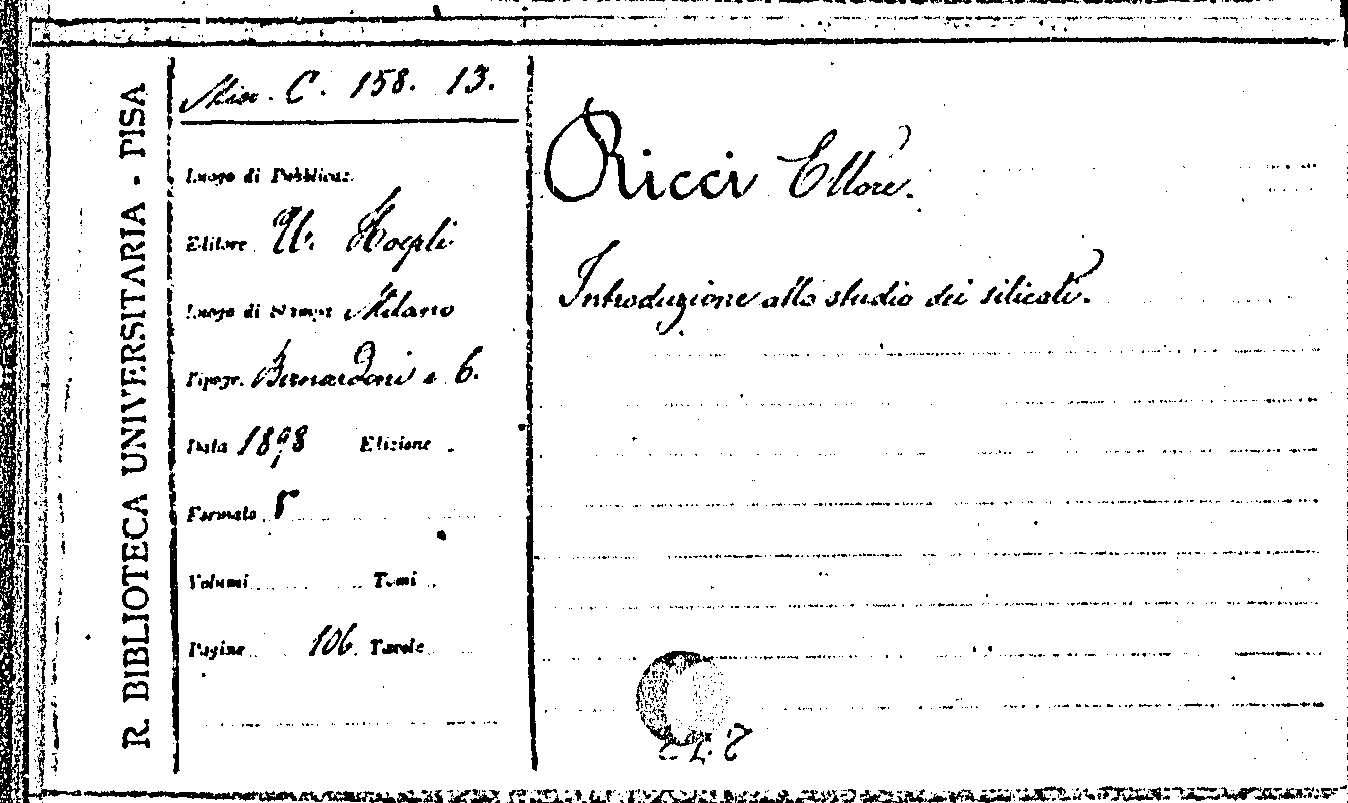 R. BIBLIOTECA UNIVERSITARIA - PISA
Misc. C. 158. 13.
Luogo di Pubblicaz.
Editore U. Hoepli
Luogo di Stampa Milano
Tipogr. Bernardoni e C.
Data 1898 Edizione
Formato 8
Volumi Tomi
Pagine 106 Tavole
Ricci Ettore.
Introduzione allo studio dei silicati.